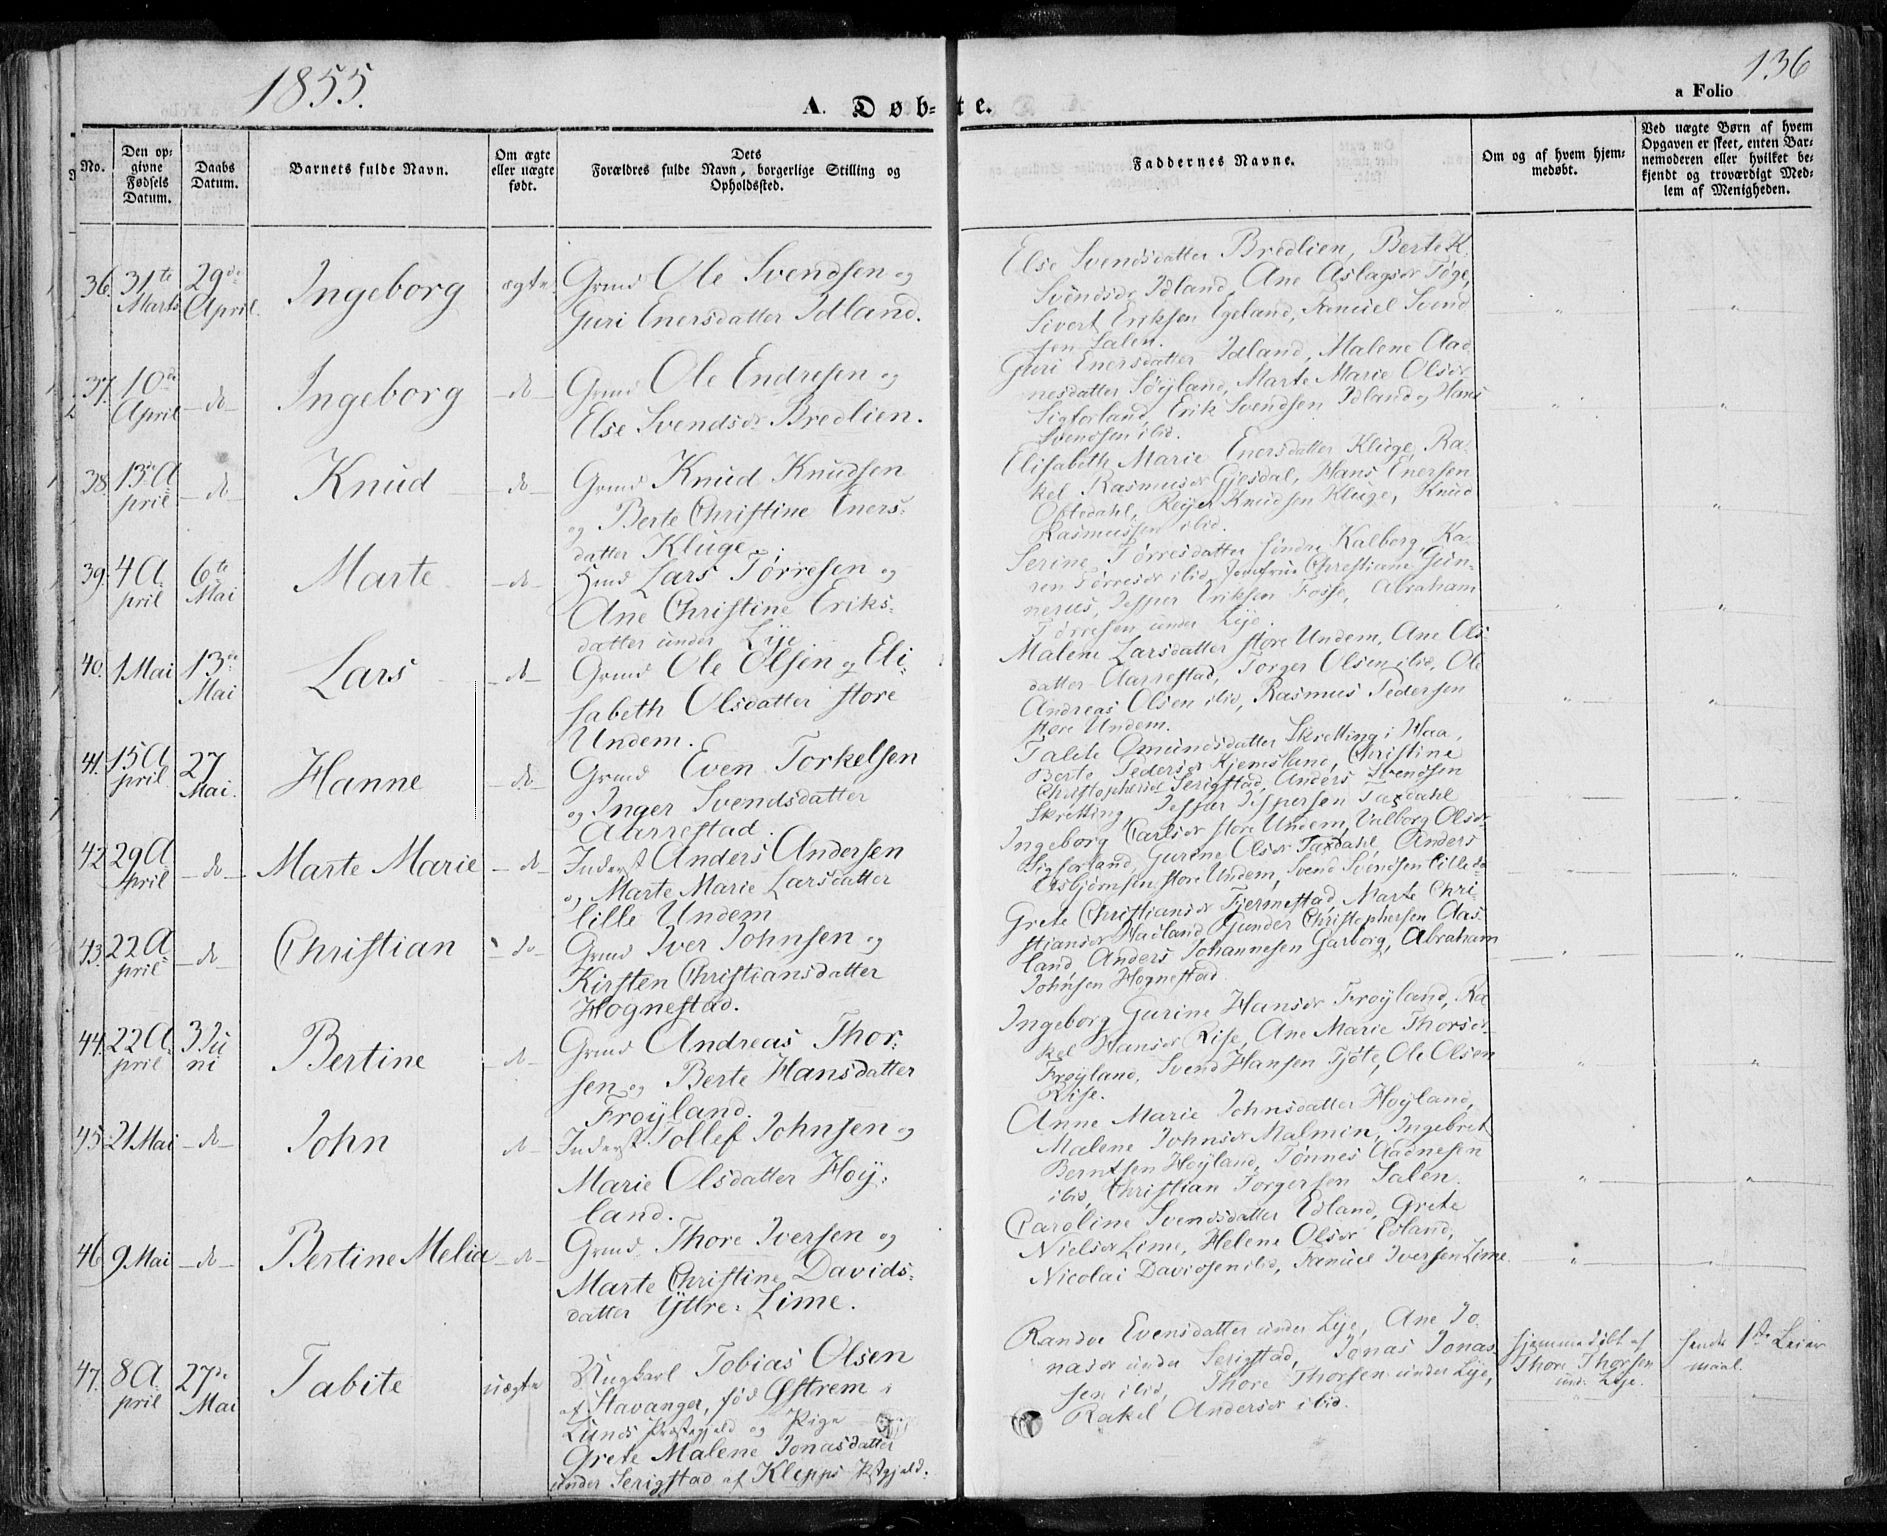 1855.
136
A. Døb=
te.
a Folio
No.
Den op=
givne
Fødsels
Datum.
Daabs
Datum.
Barnets fulde Navn.
Om ægte
eller uægte
født.
Dets
Forældres fulde Navn, borgerlige Stilling og
Opholdssted.
Faddernes Navne.
Om og af hvem hjem=
medøbt.
Ved uægte Børn af hvem
Opgaven er skeet, enten Bar=
nemoderen eller hvilket be=
kjendt og troværdigt Med=
lem af Menigheden.
36. 31te Marts 29de April. Ingeborg ægte
Grmd Ole Svendsen og
Guri Enersdatter Idland.
Else Svendsdatter Bredlien, Berte K.
Svendsdr Idland, Ane Aslagsdr Tøge,
Sivert Eriksen Egeland, Samuel Svend
sen Salen.
37. 10de April -do- Ingeborg -do-
Grmd Ole Endresen og
Else Svendsdr Bredlien.
Guri Enersdatter Idland, Malene Aad
nesdatter Søyland, Marte Marie Olsdr
Sigforland, Erik Svendsen Idland og Hans
Svendsen ibid.
38. 13de A
pril -do- Knud -do-
Grmd Knud Knudsen
og Berte Christine Eners=
datter Kluge.
Elisabeth Marie Enersdatter Kluge, Ra=
kel Rasmusdr Gjesdal, Hans Enersen
Oftedahl, Reijer Knudsen Kluge, Knud
Rasmussen ibid.
39. 4 A
pril 6te Mai Marte -do-
Hmd Lars Tørresen og
Ane Christine Eriks=
datter under Lye
Serine Tørresdatter søndre Kalberg, Ka=
ren Tørresdr ibid, Jomfrue Christiane Gun=
nerus, Jesper Eriksen Fosse, Abraham
Tørresen under Lye.
40. 1 Mai 13de Mai Lars -do-
Grmd Ole Olsen og Eli=
sabeth Olsdatter store
Undem.
Malene Larsdatter store Undem, Ane Ols=
datter Aarrestad, Torger Olsen ibid, Ole
Andreas Olsen ibid, Rasmus Pedersen
store Undem.
41. 15 A
pril 27 Mai. Hanne -do-
Grmd Even Torkelsen
og Inger Svendsdatter
Aarrestad.
Talete Omundsdatter Skretting i Haa,
Berte Pedersdr Kjemsland, Christine
Christophersdr Serigstad, Anders Svendsen
Skretting, Jesper Jespersen Taxdahl
42 29 A
pril -do- Marte Marie -do-
Inderst Anders Andersen
og Marte Marie Larsdatter
lille Undem
Ingeborg Carlsdr store Undem, Valborg Olsdr
Sigforland, Gurine Olsdr Taxdahl, Anders
Asbjørnsen store Undem, Svend Svendsen lille do
43. 22 A
pril -do- Christian -do-
Grmd Iver Johnsen og
Kirsten Christiansdatter
Hognestad.
Grete Christiansdr Tjermestad, Marte Chri=
stiansdr Hadland, Gunder Christophersen Aas=
land, Anders Johannesen Garborg, Abraham
Johnsen Hognestad
44. 22 A
pril 3 Ju
ni Bertine -do-
Grmd Andreas Thor=
sen og Berte Hansdatter
Frøyland.
Ingeborg Gurine Hansdr Frøyland, Ra=
kel Hansdr Rise, Ane Marie Thorsdr
Frøyland, Svend Hansen Tjøte, Ole Olsen
Rise.
45. 21 Mai -do- John -do-
Inderst Tollef Johnsen og
Marie Olsdatter Høy=
land.
Anne Marie Johnsdatter Høyland,
Malene Johnsdr Malmin, Ingebret
Berntsen Høyland, Tønnes Aadnesen
ibid, Christian Torgersen Salen.
46 9 Mai -do- Bertine Melia -do-
Grmd Thore Iversen og
Marte Christine Davids=
datter Yttre Lime.
Caroline Svendsdatter Edland, Grete
Nielsdr Lime, Helene Olsdr Edland,
Nicolai Davidsen ibid, Samuel Iversen Lime.
47. 8 A
pril 27de Mai Tabite uægte
Ungkarl Tobias Olsen
af Stavanger, fød Østrem i
Lunds Præstegjeld og Pige
Grete Malene Jonasdatter
under Serigstad af Klepps Pstgjeld.
Randve Evensdatter under Lye, Ane Jo
nasdr under Serigstad, Jonas Jonas
sen ibid, Thore Thorsen under Lye,
Rakel Andersdr ibid.
hjemmedøbt af
Thore Thorsen
und. Lye.
hendes 1ste Leier
maal.